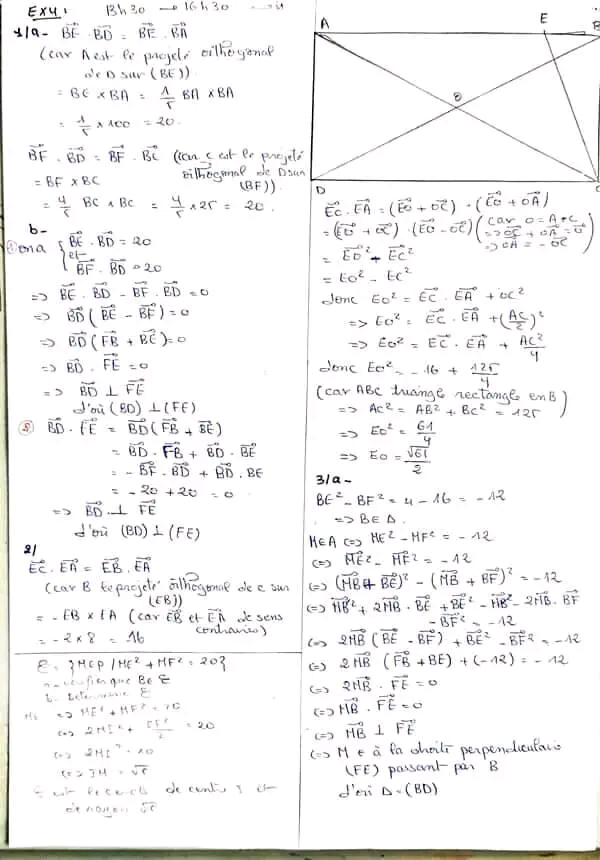 EX4:
13h30 → 16h30
1/a- BE⃗ . BD⃗ = BE⃗ . BA⃗
(car A est le projeté orthogonal
de D sur (BE))
= BE × BA = 1/5 BA × BA
= 1/5 × 100 = 20.
BF⃗ . BD⃗ = BF⃗ . BC⃗ (car C est le projeté
orthogonal de D sur
(BF)).
= BF × BC
= 4/5 BC × BC = 4/5 × 25 = 20.
b-
① on a { BE⃗ . BD⃗ = 20
et
BF⃗ . BD⃗ = 20
=> BE⃗ . BD⃗ - BF⃗ . BD⃗ = 0
=> BD⃗ ( BE⃗ - BF⃗ ) = 0
=> BD⃗ ( FB⃗ + BE⃗ ) = 0
=> BD⃗ . FE⃗ = 0
=> BD⃗ ⊥ FE⃗
d'où (BD) ⊥ (FE)
② BD⃗ . FE⃗ = BD⃗ ( FB⃗ + BE⃗ )
= BD⃗ . FB⃗ + BD⃗ . BE⃗
= - BF⃗ . BD⃗ + BD⃗ . BE
= - 20 + 20 = 0
=> BD⃗ ⊥ FE⃗
d'où (BD) ⊥ (FE)
2/
EC⃗ . EA⃗ = EB⃗ . EA⃗
(car B le projeté orthogonal de c sur
(EB))
= - EB × EA (car EB⃗ et EA⃗ de sens
contraires)
= - 2 × 8 = 16
E = {M ∈ P / ME² + MF² = 20}
a- vérifier que B ∈ E
b. Déterminer E
<=> ME² + MF² = 20
<=> 2MI² + EF²/2 = 20
<=> 2MI² = 10
<=> IM = √5
E est le cercle de centre I et
de rayon √5
A
E
B
O
D
C
EC⃗ . EA⃗ = (EO⃗ + OC⃗) . (EO⃗ + OA⃗)
= (EO⃗ + OC⃗) . (EO⃗ - OC⃗) (car O = A * C
=> OC⃗ + OA⃗ = 0⃗
=> OA⃗ = - OC⃗)
= EO⃗² + EC⃗²
= EO² - EC²
donc EO² = EC⃗ . EA⃗ + OC²
=> EO² = EC⃗ . EA⃗ + (AC/2)²
=> EO² = EC⃗ . EA⃗ + AC²/4
donc EO² = - 16 + 125/4
(car ABC triangle rectangle en B)
=> AC² = AB² + BC² = 125
=> EO² = 61/4
=> EO = √61/2
3/a-
BE² - BF² = 4 - 16 = - 12
=> B ∈ Δ.
M ∈ Δ <=> ME² - MF² = - 12
<=> ME⃗² - MF⃗² = - 12
<=> (MB⃗ + BE⃗)² - (MB⃗ + BF⃗)² = - 12
<=> MB⃗² + 2MB⃗ . BE⃗ + BE⃗² - MB⃗² - 2MB⃗ . BF⃗
- BF⃗² = - 12
<=> 2MB⃗ ( BE⃗ - BF⃗ ) + BE⃗² - BF⃗² = - 12
<=> 2MB⃗ ( FB⃗ + BE) + (- 12) = - 12
<=> 2MB⃗ . FE⃗ = 0
<=> MB⃗ . FE⃗ = 0
<=> MB⃗ ⊥ FE⃗
<=> M ∈ à la droite perpendiculaire
(FE) passant par B
d'où Δ = (BD)